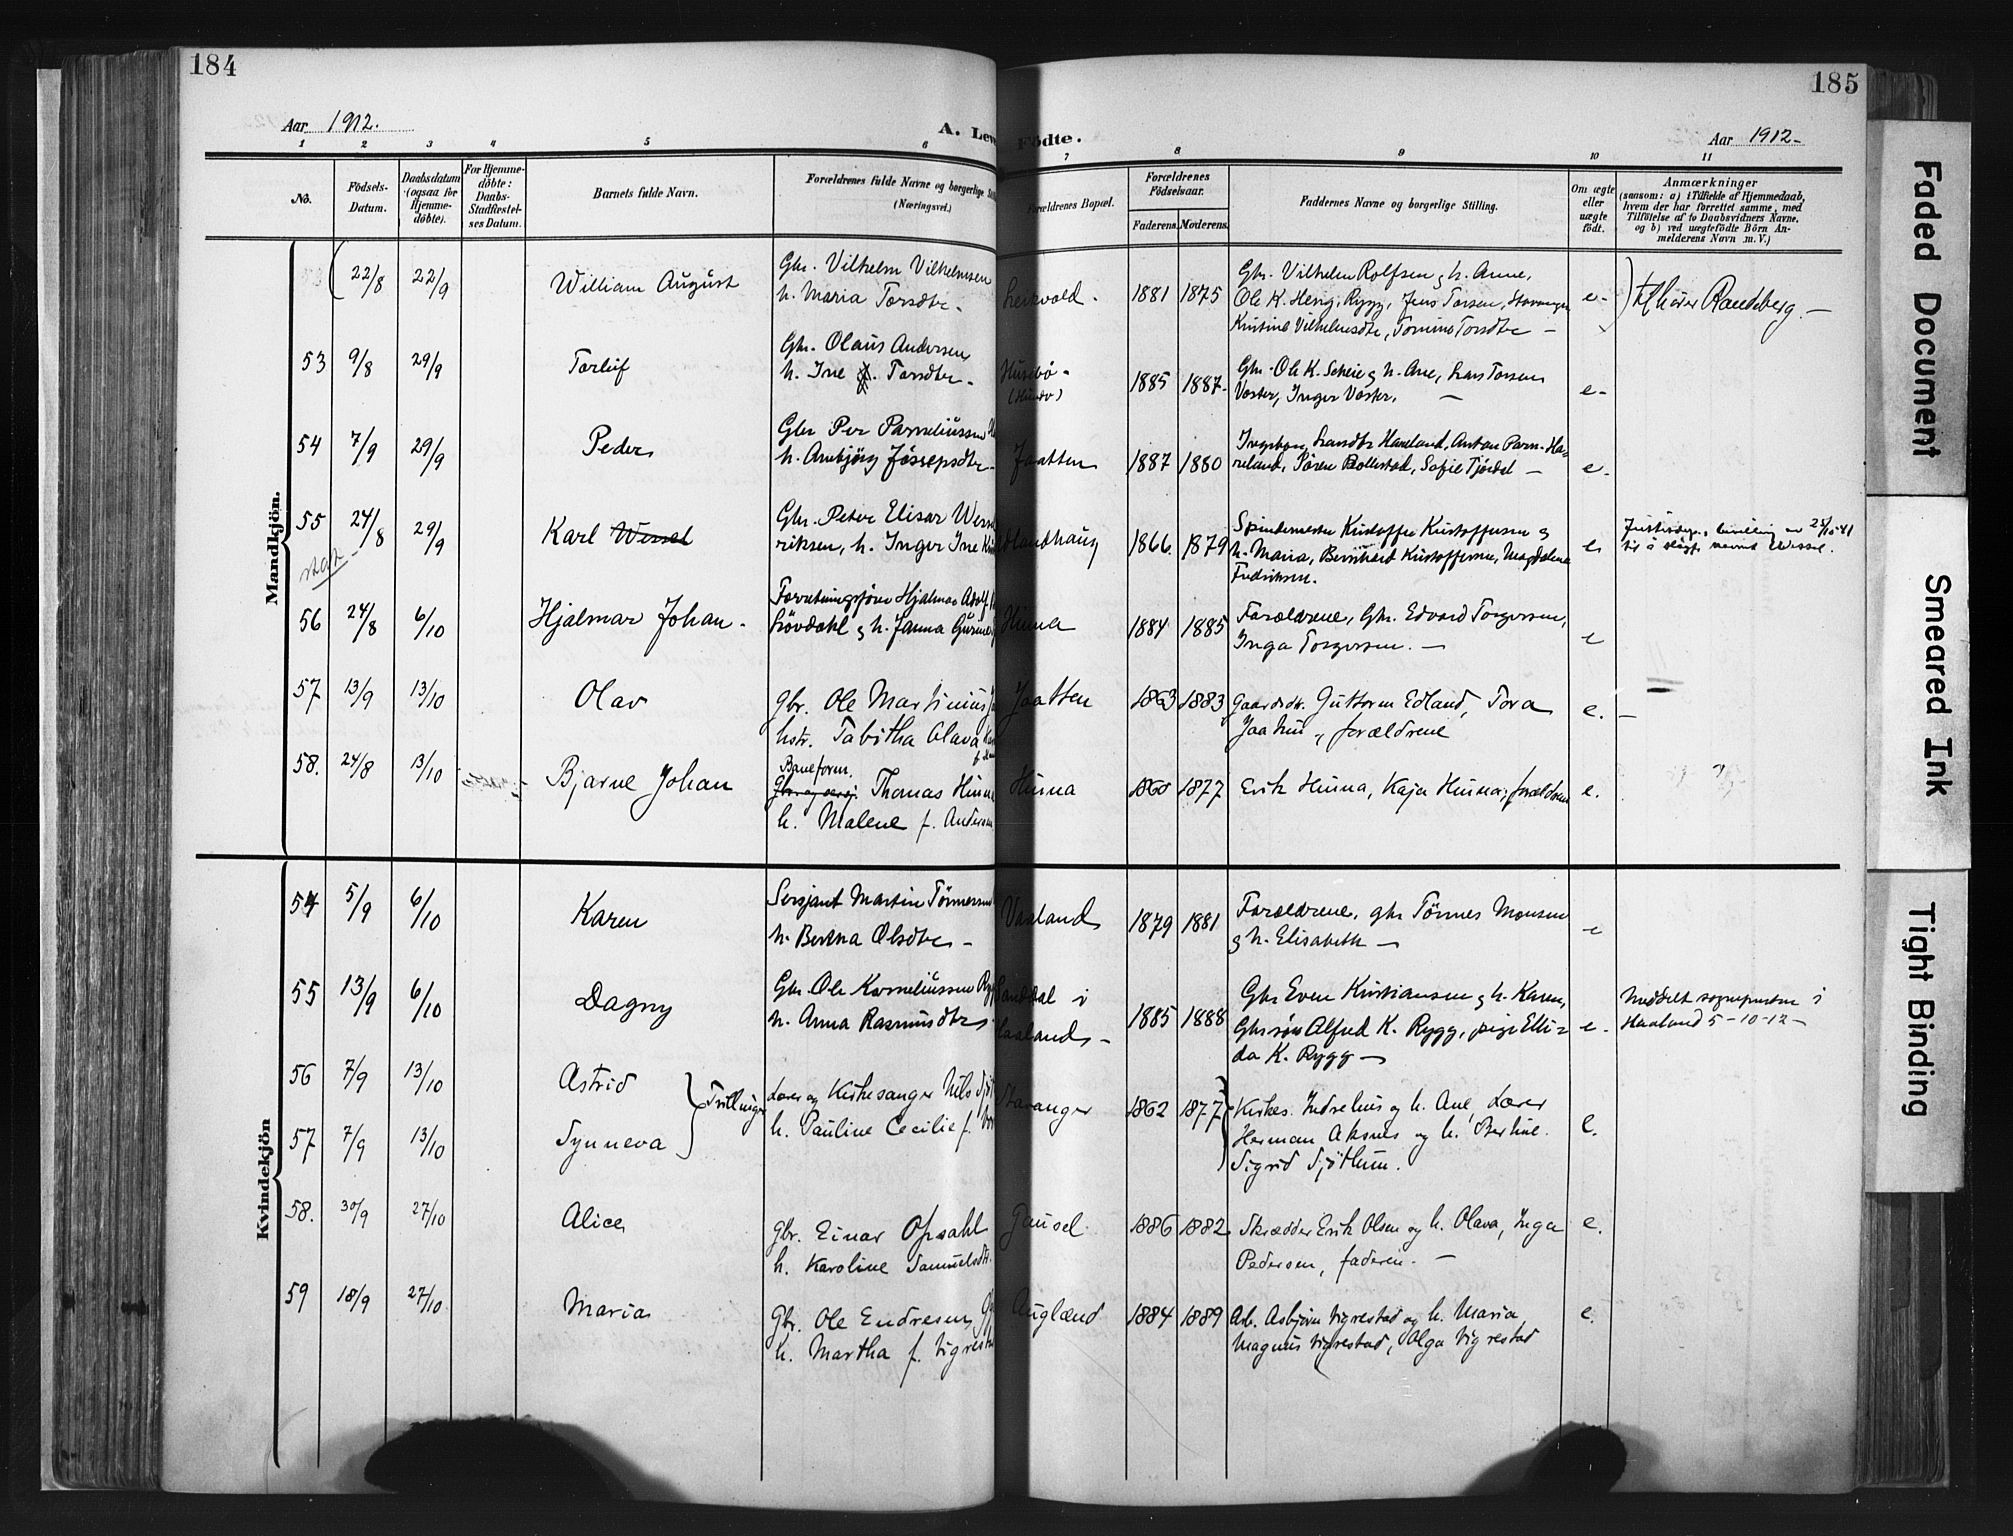 184
185
Aar 1912.
A. Lev
Födte.
Aar 1912-
1 2 3 4 5 6 7 8 9 10 11
No.
Födsels-
Datum.
Daabsdatum
(ogsaa for
Hjemme-
döbte).
For Hjemme-
döbte:
Daabs-
Stadfæstel-
ses Datum.
Barnets fulde Navn.
Forældrenes fulde Navne og borgerlige
(Næringsvei.)
Forældrenes Bopæl.
Forældrenes
Födselsaar.
Faderens. Moderens.
Faddernes Navne og borgerlige Stilling.
Om ægte
eller
uægte
födt.
Anmærkninger
(saasom: a) i Tilfælde af Hjemmedaab,
hvem der har forrettet samme, med
Tilföielse af to Daabsvidners Navne,
og b) ved uægtefödte Börn An-
melderens Navn m.V.)
Mandkjön.
22/8 22/9 William August
Gbr. Vilhelm Vilhelmsen
h. Maria Torsdtr.
1881 1875
Gbr. Vilhelm Rolfsen & h. Anne,
Ole K. Herig, Rygg, Jens Torsen, Stavanger
Kristine Vilhelmsdtr, Tomine Torsdtr -
e-
tilhører Randeberg. -
53 9/8 29/9 Torleif
Gbr. Olaus Andersen
h. Ine Torsdtr.
Husebö-
1885 1887-
Gbr. Ole K. Scheie & h. Ane, Lars Torsen
Vaster, Inger Vaster. -
e-
54 7/9 29/9 Peder
Gbr Per Parneliussen
h. Anbjörg Jössepsdtr.
Jaatten
1887 1880
Ingebor, Larsdtr Haneland, Anton Parn. Ha-
neland, Sören Bollestad, Sofie Tjördal -
e-
55 24/8 29/9 Karl Wessel
Gbr. Peter Elisar Wess
riksen, h. Inger Ine
landhaug
1866. 1879
Spindemester Kristoffer Kristoffersen &
h. Maria, Bernhard Kristoffersen, Magdalena
Fredriksen.
e
til å slegtsnavnet Wessel.
56 24/8 6/10 Hjalmar Johan-
Forretningsförer Hjalmar Adolf
Lövdahl & h. Janna
Hinna
1884 1885
Forældrene, Gbr. Edvard Torgersen,
Inga Torgersen. -
e
57 13/9 13/10 Olav
Gbr. Ole Martinius
hstr. Tabitha Olava
Jaatten
1863 1883
Gaardbr. Guttorm Edland, Tora
Jaatten, forældrene
e. -
58. 24/8 13/10 Bjarne Johan
Baneform.
Thomas Hinna
h. Malene f. Andersen
Hinna
1860 1877
Erik Hinna, Kaja Hinna, forældrene
e.
Kvindekjön
54 5/9 6/10 Karen
Sersjant Martin Tönnessen
h. Bertha Olsdtr -
Vaaland
1879 1881
Forældrene, gbr Tönnes Monsen
& h. Elisabeth -
e
55 13/9 6/10 Dagny
Gbr. Ole Korneliussen Rygg
h. Anna Rasmusdtr.
Sanddal i
Haaland -
1885 1888
Gbr Even Kristiansen & h. Karen,
Gbrsön Alfred K. Rygg, pige Elli-
da K. Rygg -
e.
Meddelt sognepresten i
Haaland 5-10-12-
56 7/9 13/10 Astrid
57 7/9 13/10 Synneva
Tvillinger
Lærer og Kirkesanger Nils
h. Pauline Cecilie f.
Stavanger
1862 1877
Kirkes. Indrehus og h. Ane, Lærer
Herman Aksnes og h. Berthe.
Sigrid Sjöthun.
e.
58. 30/9 27/10 Alice
Gbr. Einar Opsahl
h. Karoline Samuelsdtr.
Gausel.
1886 1882
Skrædder Erik Olsen og h. Olava, Inga
Pedersen, faderen. -
e.
59 18/9 27/10 Maria
Gbr. Ole Endresen
h. Martha f. Vigrestad
Auglænd
1884 1889
Arb. Asbjörn Vigrestad og h. Maria,
Magnus Vigrestad, Olga Vigrestad
e.
Faded Document
Smeared Ink
Tight Binding